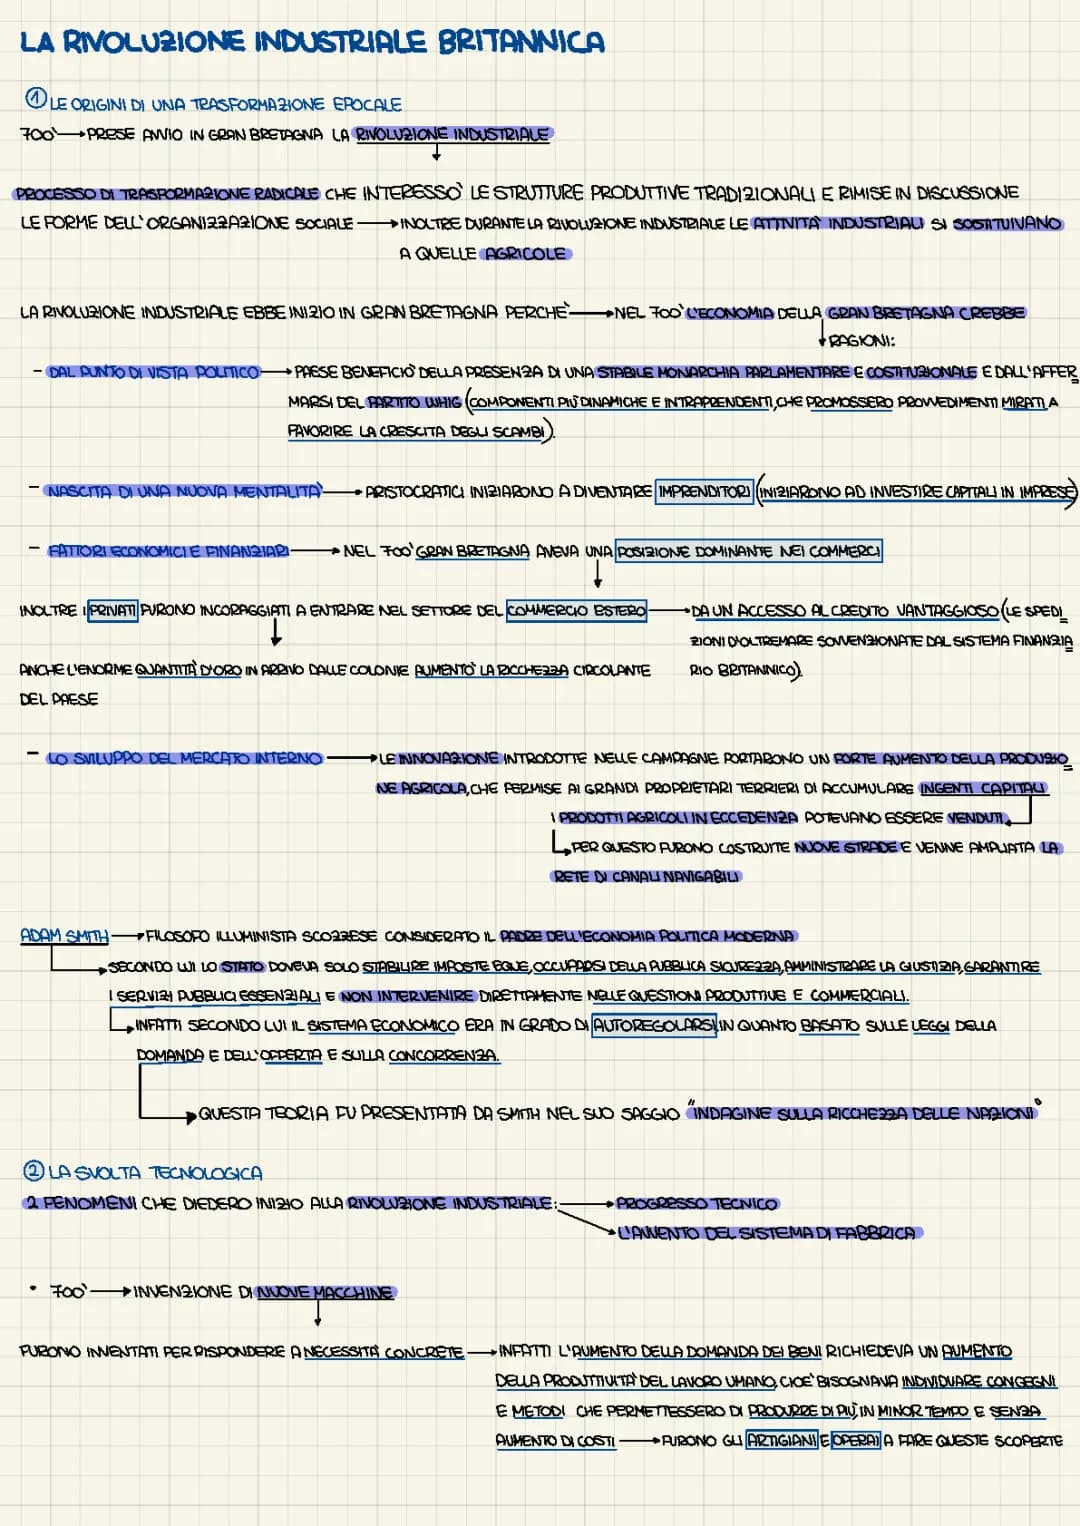 LA RIVOLUZIONE INDUSTRIALE BRITANNICA
① LE ORIGINI DI UNA TRASFORMAZIONE EPOCALE
700' → PRESE AVVIO IN GRAN BRETAGNA LA RIVOLUZIONE INDUSTRIALE
PROCESSO DI TRASFORMAZIONE RADICALE CHE INTERESSO' LE STRUTTURE PRODUTTIVE TRADIZIONALI E RIMISE IN DISCUSSIONE
LE FORME DELL'ORGANIZZAZIONE SOCIALE → INOLTRE DURANTE LA RIVOLUZIONE INDUSTRIALE LE ATTIVITA' INDUSTRIALI SI SOSTITUIVANO
A QUELLE AGRICOLE
LA RIVOLUZIONE INDUSTRIALE EBBE INIZIO IN GRAN BRETAGNA PERCHE' → NEL 700' L'ECONOMIA DELLA GRAN BRETAGNA CREBBE
RAGIONI:
- DAL PUNTO DI VISTA POLITICO → PAESE BENEFICIO' DELLA PRESENZA DI UNA STABILE MONARCHIA PARLAMENTARE E COSTITUZIONALE E DALL'AFFER
MARSI DEL PARTITO WHIG (COMPONENTI PIU' DINAMICHE E INTRAPRENDENTI, CHE PROMOSSERO PROVVEDIMENTI MIRATI A
FAVORIRE LA CRESCITA DEGLI SCAMBI).
- NASCITA DI UNA NUOVA MENTALITA' → ARISTOCRATICI INIZIARONO A DIVENTARE IMPRENDITORI (INIZIARONO AD INVESTIRE CAPITALI IN IMPRESE)
- FATTORI ECONOMICI E FINANZIARI → NEL 700' GRAN BRETAGNA AVEVA UNA POSIZIONE DOMINANTE NEI COMMERCI
INOLTRE I PRIVATI FURONO INCORAGGIATI A ENTRARE NEL SETTORE DEL COMMERCIO ESTERO → DA UN ACCESSO AL CREDITO VANTAGGIOSO (LE SPEDI
ZIONI D'OLTREMARE SOVVENZIONATE DAL SISTEMA FINANZIA
RIO BRITANNICO).
ANCHE L'ENORME QUANTITA' D'ORO IN ARRIVO DALLE COLONIE AUMENTO' LA RICCHEZZA CIRCOLANTE
DEL PAESE
- LO SVILUPPO DEL MERCATO INTERNO → LE INNOVAZIONE INTRODOTTE NELLE CAMPAGNE PORTARONO UN FORTE AUMENTO DELLA PRODUZIO
NE AGRICOLA, CHE PERMISE AI GRANDI PROPRIETARI TERRIERI DI ACCUMULARE INGENTI CAPITALI
I PRODOTTI AGRICOLI IN ECCEDENZA POTEVANO ESSERE VENDUTI
PER QUESTO FURONO COSTRUITE NUOVE STRADE E VENNE AMPLIATA LA
RETE DI CANALI NAVIGABILI
ADAM SMITH → FILOSOFO ILLUMINISTA SCOZZESE CONSIDERATO IL PADRE DELL'ECONOMIA POLITICA MODERNA
SECONDO LUI LO STATO DOVEVA SOLO STABILIRE IMPOSTE EQUE, OCCUPARSI DELLA PUBBLICA SICUREZZA, AMMINISTRARE LA GIUSTIZIA, GARANTIRE
I SERVIZI PUBBLICI ESSENZIALI E NON INTERVENIRE DIRETTAMENTE NELLE QUESTIONI PRODUTTIVE E COMMERCIALI.
INFATTI SECONDO LUI IL SISTEMA ECONOMICO ERA IN GRADO DI AUTOREGOLARSI, IN QUANTO BASATO SULLE LEGGI DELLA
DOMANDA E DELL'OFFERTA E SULLA CONCORRENZA.
QUESTA TEORIA FU PRESENTATA DA SMITH NEL SUO SAGGIO "INDAGINE SULLA RICCHEZZA DELLE NAZIONI"
② LA SVOLTA TECNOLOGICA
2 FENOMENI CHE DIEDERO INIZIO ALLA RIVOLUZIONE INDUSTRIALE: → PROGRESSO TECNICO
→ L'AVVENTO DEL SISTEMA DI FABBRICA
• 700' → INVENZIONE DI NUOVE MACCHINE
FURONO INVENTATI PER RISPONDERE A NECESSITA' CONCRETE → INFATTI L'AUMENTO DELLA DOMANDA DEI BENI RICHIEDEVA UN AUMENTO
DELLA PRODUTTIVITA' DEL LAVORO UMANO, CIOE' BISOGNAVA INDIVIDUARE CONGEGNI
E METODI CHE PERMETTESSERO DI PRODURRE DI PIU', IN MINOR TEMPO E SENZA
AUMENTO DI COSTI → FURONO GLI ARTIGIANI E OPERAI A FARE QUESTE SCOPERTE